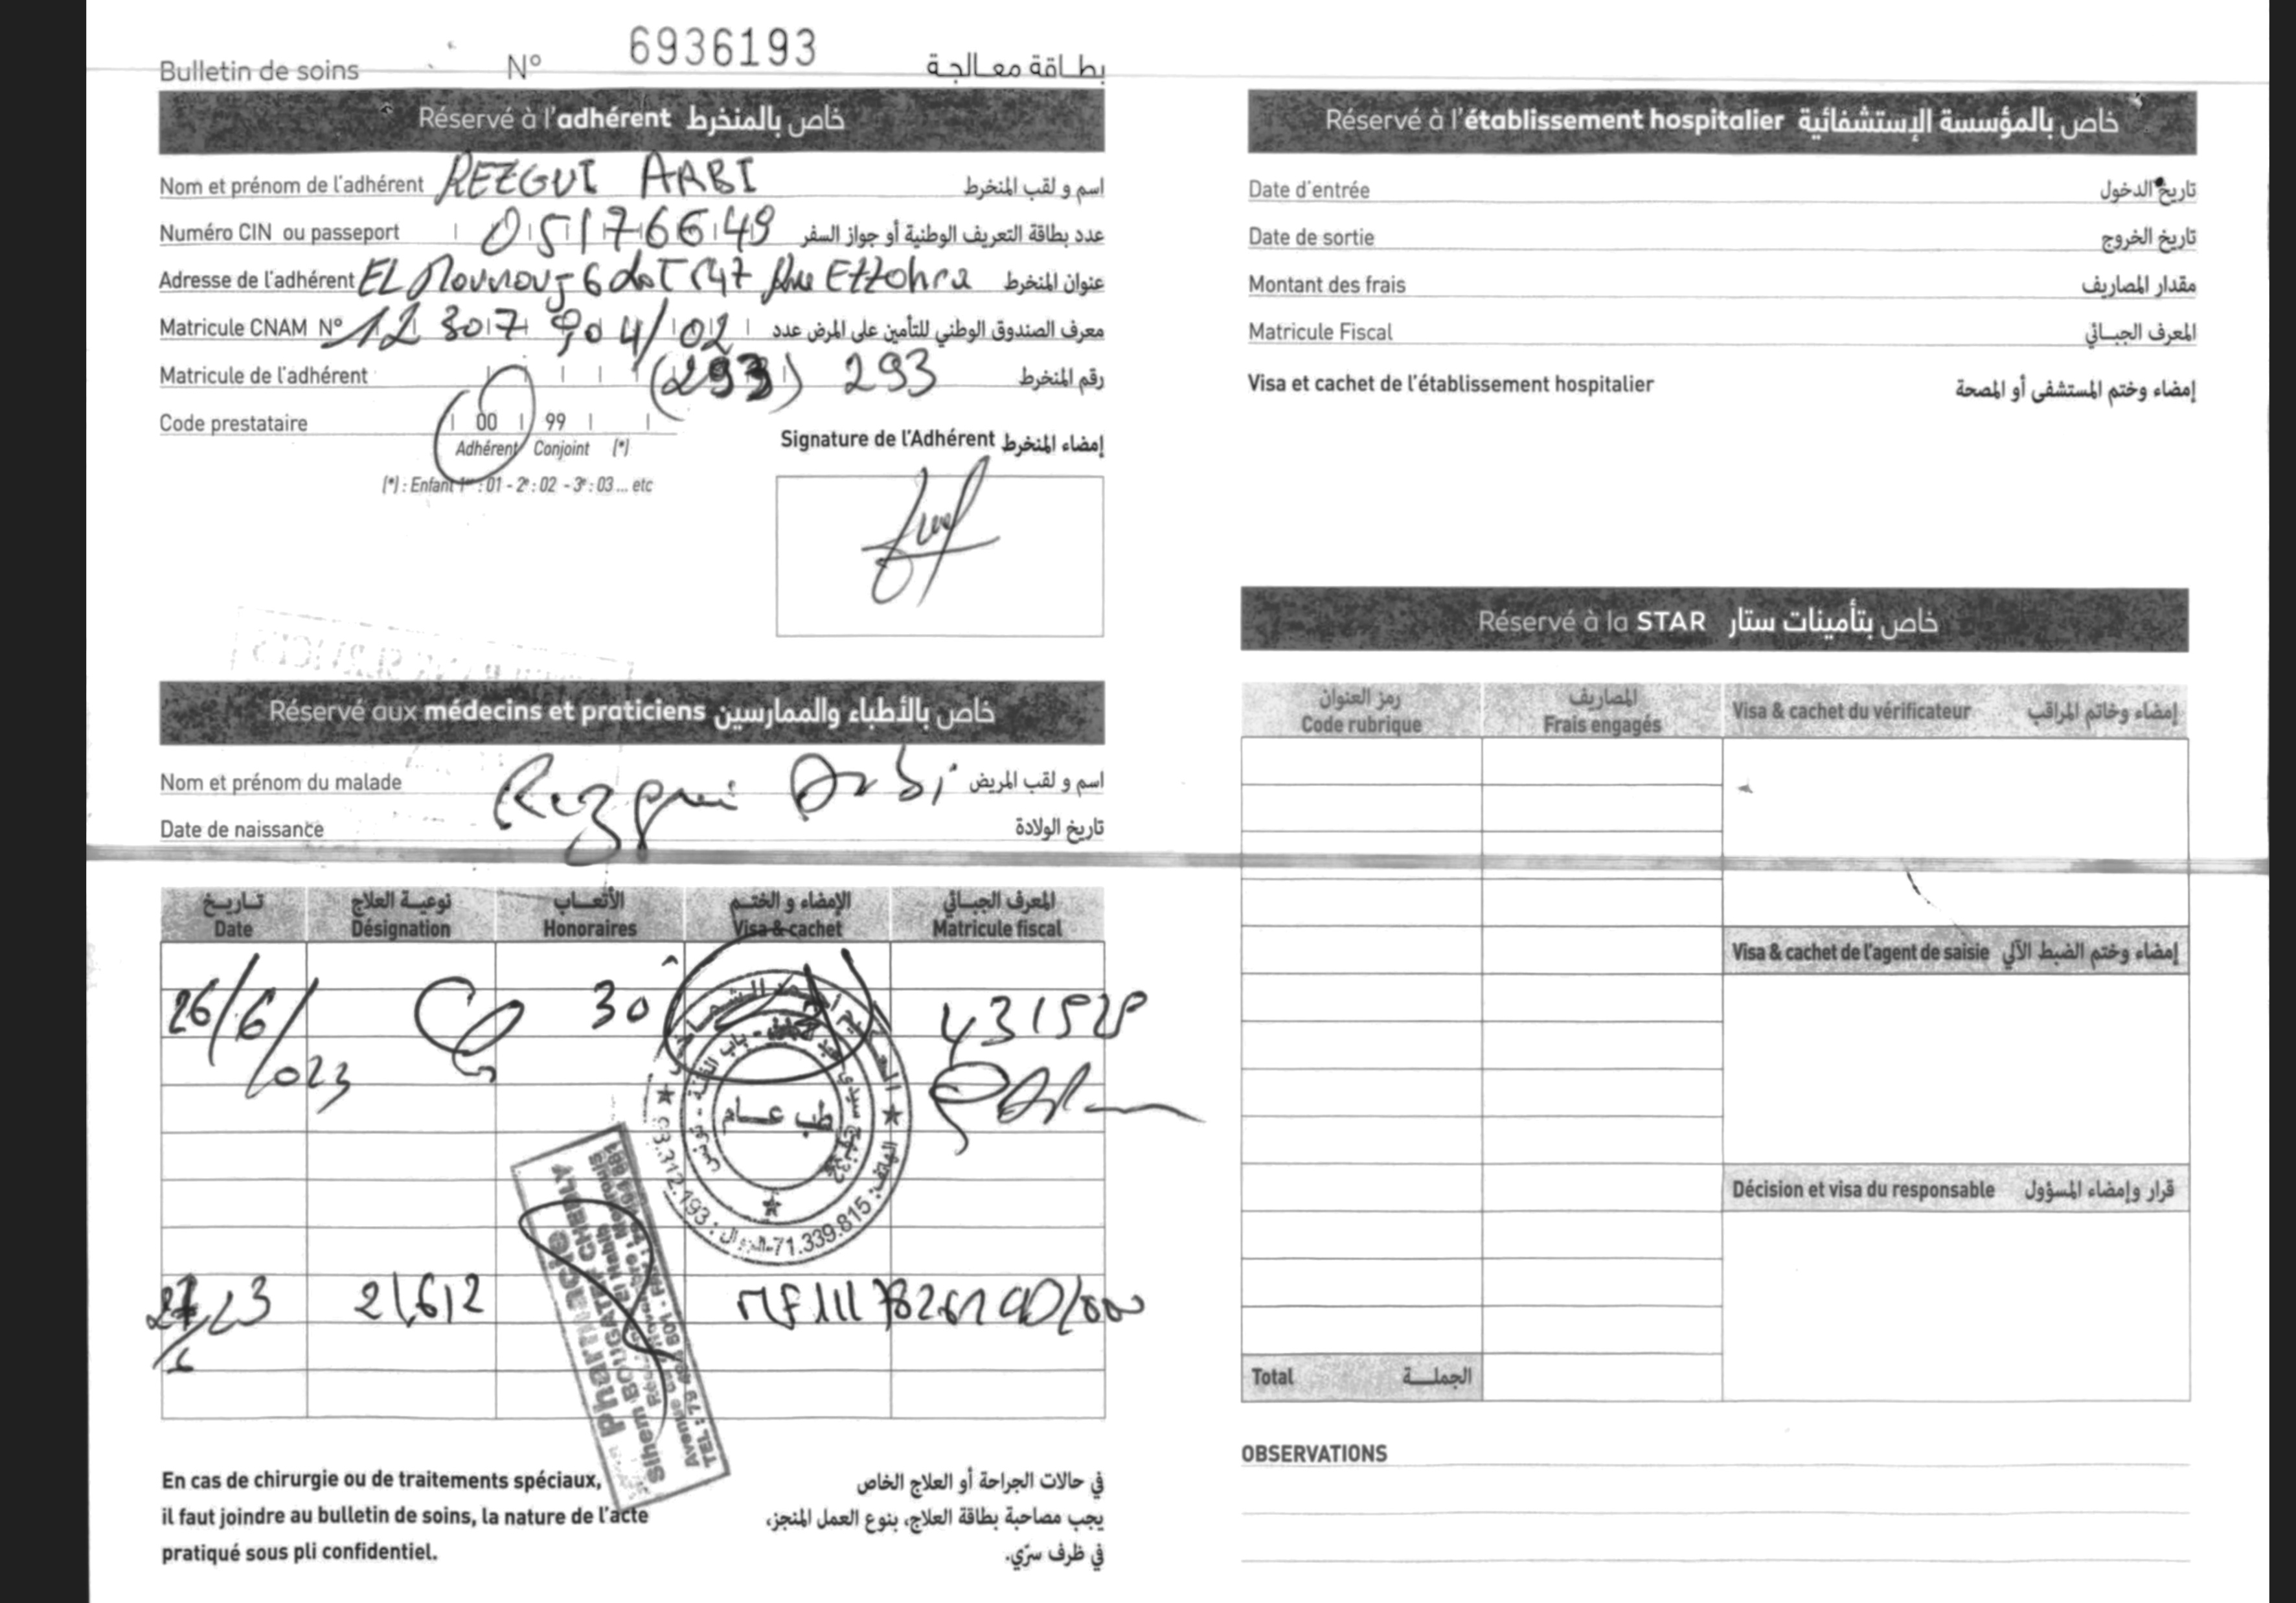 Bulletin de soins N° 6936193 بطاقة معالجة
Réservé à l'adhérent خاص بالمنخرط
Nom et prénom de l'adhérent REZGUI ARBI اسم و لقب المنخرط
Numéro CIN ou passeport 05176649 عدد بطاقة التعريف الوطنية أو جواز السفر
Adresse de l'adhérent EL Mourouj 6 Rue Ettohra عنوان المنخرط
Matricule CNAM N° 12 307 904/02 معرف الصندوق الوطني للتأمين على المرض عدد
Matricule de l'adhérent (293) 293 رقم المنخرط
Code prestataire 00 99
Adhérent Conjoint (*)
(*) : Enfant 1er : 01 - 2e : 02 - 3e : 03 ... etc
Signature de l'Adhérent إمضاء المنخرط
Réservé aux médecins et praticiens خاص بالأطباء والممارسين
Nom et prénom du malade Rezgui Arbi اسم و لقب المريض
Date de naissance تاريخ الولادة
تاريخ نوعية العلاج الأتعاب الإمضاء و الختم المعرف الجبائي
Date Désignation Honoraires Visa & cachet Matricule fiscal
26/6/023 30
طب عام
71.339.815
93.312.193
21,612
pharmacie
Sihem BOUGATEF CHERLY
En cas de chirurgie ou de traitements spéciaux,
il faut joindre au bulletin de soins, la nature de l'acte
pratiqué sous pli confidentiel.
في حالات الجراحة أو العلاج الخاص
يجب مصاحبة بطاقة العلاج، بنوع العمل المنجز،
في ظرف سرّي.
Réservé à l'établissement hospitalier خاص بالمؤسسة الإستشفائية
Date d'entrée تاريخ الدخول
Date de sortie تاريخ الخروج
Montant des frais مقدار المصاريف
Matricule Fiscal المعرف الجبائي
Visa et cachet de l'établissement hospitalier إمضاء وختم المستشفى أو المصحة
Réservé à la STAR خاص بتأمينات ستار
رمز العنوان المصاريف
Code rubrique Frais engagés Visa & cachet du vérificateur إمضاء وخاتم المراقب
Visa & cachet de l'agent de saisie إمضاء وختم الضبط الآلي
Décision et visa du responsable قرار وإمضاء المسؤول
Total الجملة
OBSERVATIONS